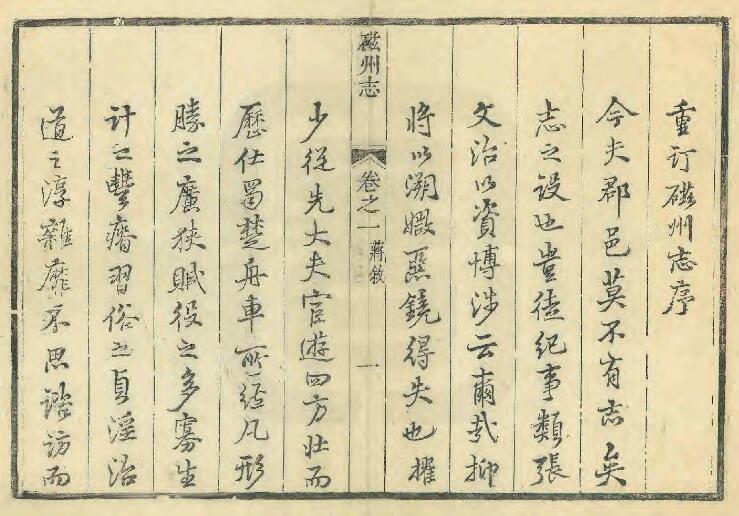 重訂磁州志序
今夫郡邑莫不有志矣
志之設也豈徒紀事類張
文治以資博涉云爾哉抑
將以溯媺慝鏡得失也擢
磁州志 卷之一 蔣敘 一
少從先大夫宦遊四方壯而
歷仕蜀楚舟車所經凡形
勝之廣狹賦役之多寡生
計之豐瘠習俗之貞淫治
道之淳雜靡不思諏訪而